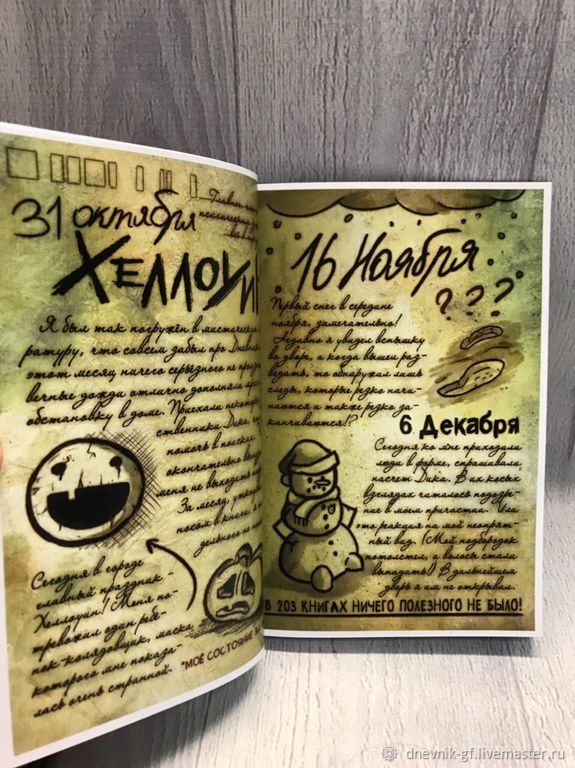 31 октября
Хеллоуин
Я был так погружён в мистическую
ратуру, что совсем забыл про Дневник
этот месяц ничего серьёзного не
вечные дожди отлично дополняли
обстановку в доме. Приехали
ственники Дика,
помочь в поисках
окончательно
меня не выходить
За месяц,
носом в книги, я
дельного не
Сегодня в городе
главный праздник -
Хеллоуин! Меня по-
тревожил один ребё-
нок-колядовщик, маска
которого мне показа-
лась очень странной.
*МОЁ СОСТОЯНИЕ
16 Ноября
???
Первый снег в середине
ноября, замечательно!
Недавно я увидел вспышку
во дворе, а когда вышел раз-
ведать, то обнаружил лишь
следы, которые резко начи-
наются и также резко за-
канчиваются!?
6 Декабря
Сегодня ко мне приходили
люди в форме, спрашивали
насчет Дика. В их косых
взглядах читалось подозре-
ние в моём причастии. Или
это реакция на мой неопрят-
ный вид. (Мой подбородок
потолстел, а волосы стали
выпадать) В дальнейшем
дверь я им не открывал.
В 203 КНИГАХ НИЧЕГО ПОЛЕЗНОГО НЕ БЫЛО!
dnevnik-gf.livemaster.ru